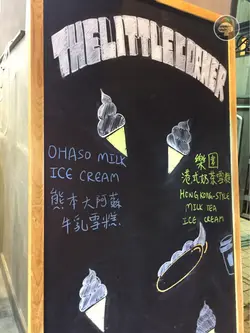 THELITTLECORNER
OHASO MILK
ICE CREAM
熊本大阿蘇
牛乳雪糕
樂園
港式奶茶雪糕
HONGKONG-STYLE
MILK TEA
ICE CREAM